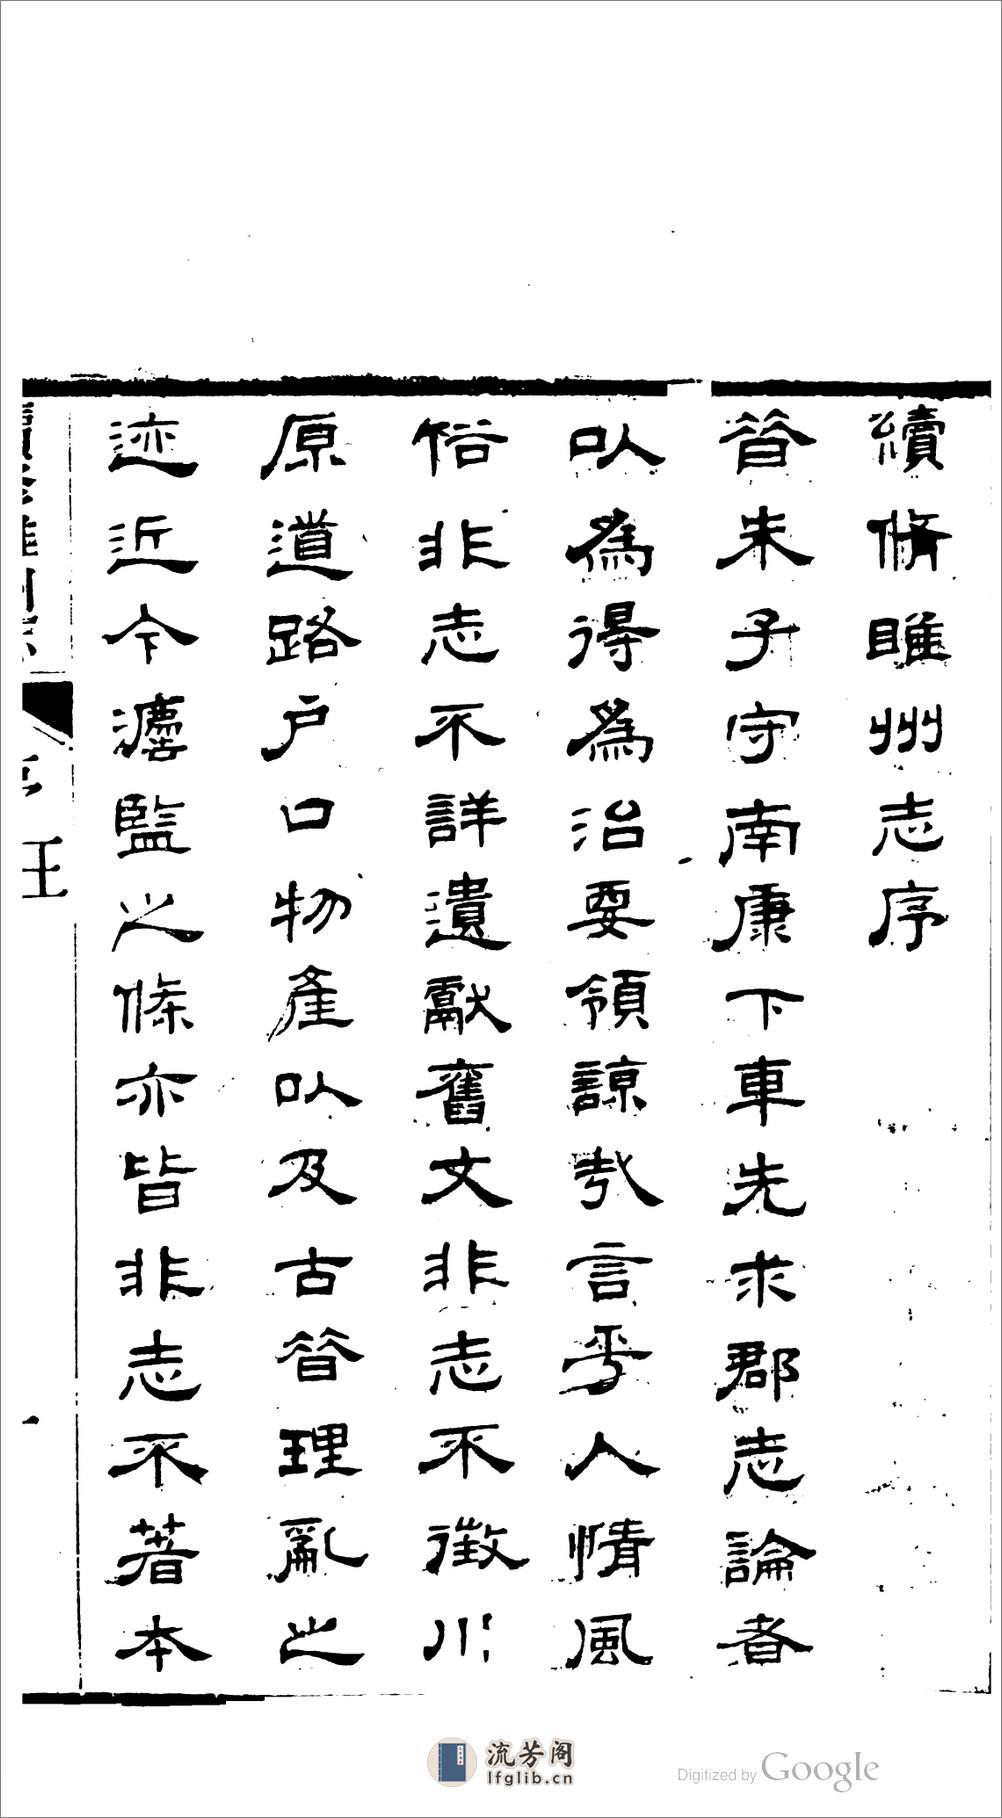 續脩睢州志序
昝朱子守南康下車先求郡志論者
以為得為治要領諒哉言乎人情風
俗非志不詳遺獻舊文非志不徵川
原道路戶口物產以及古昝理亂之
迹近今瀍監之條亦皆非志不著本
王
流芳阁
lfglib.cn
Digitized by Google